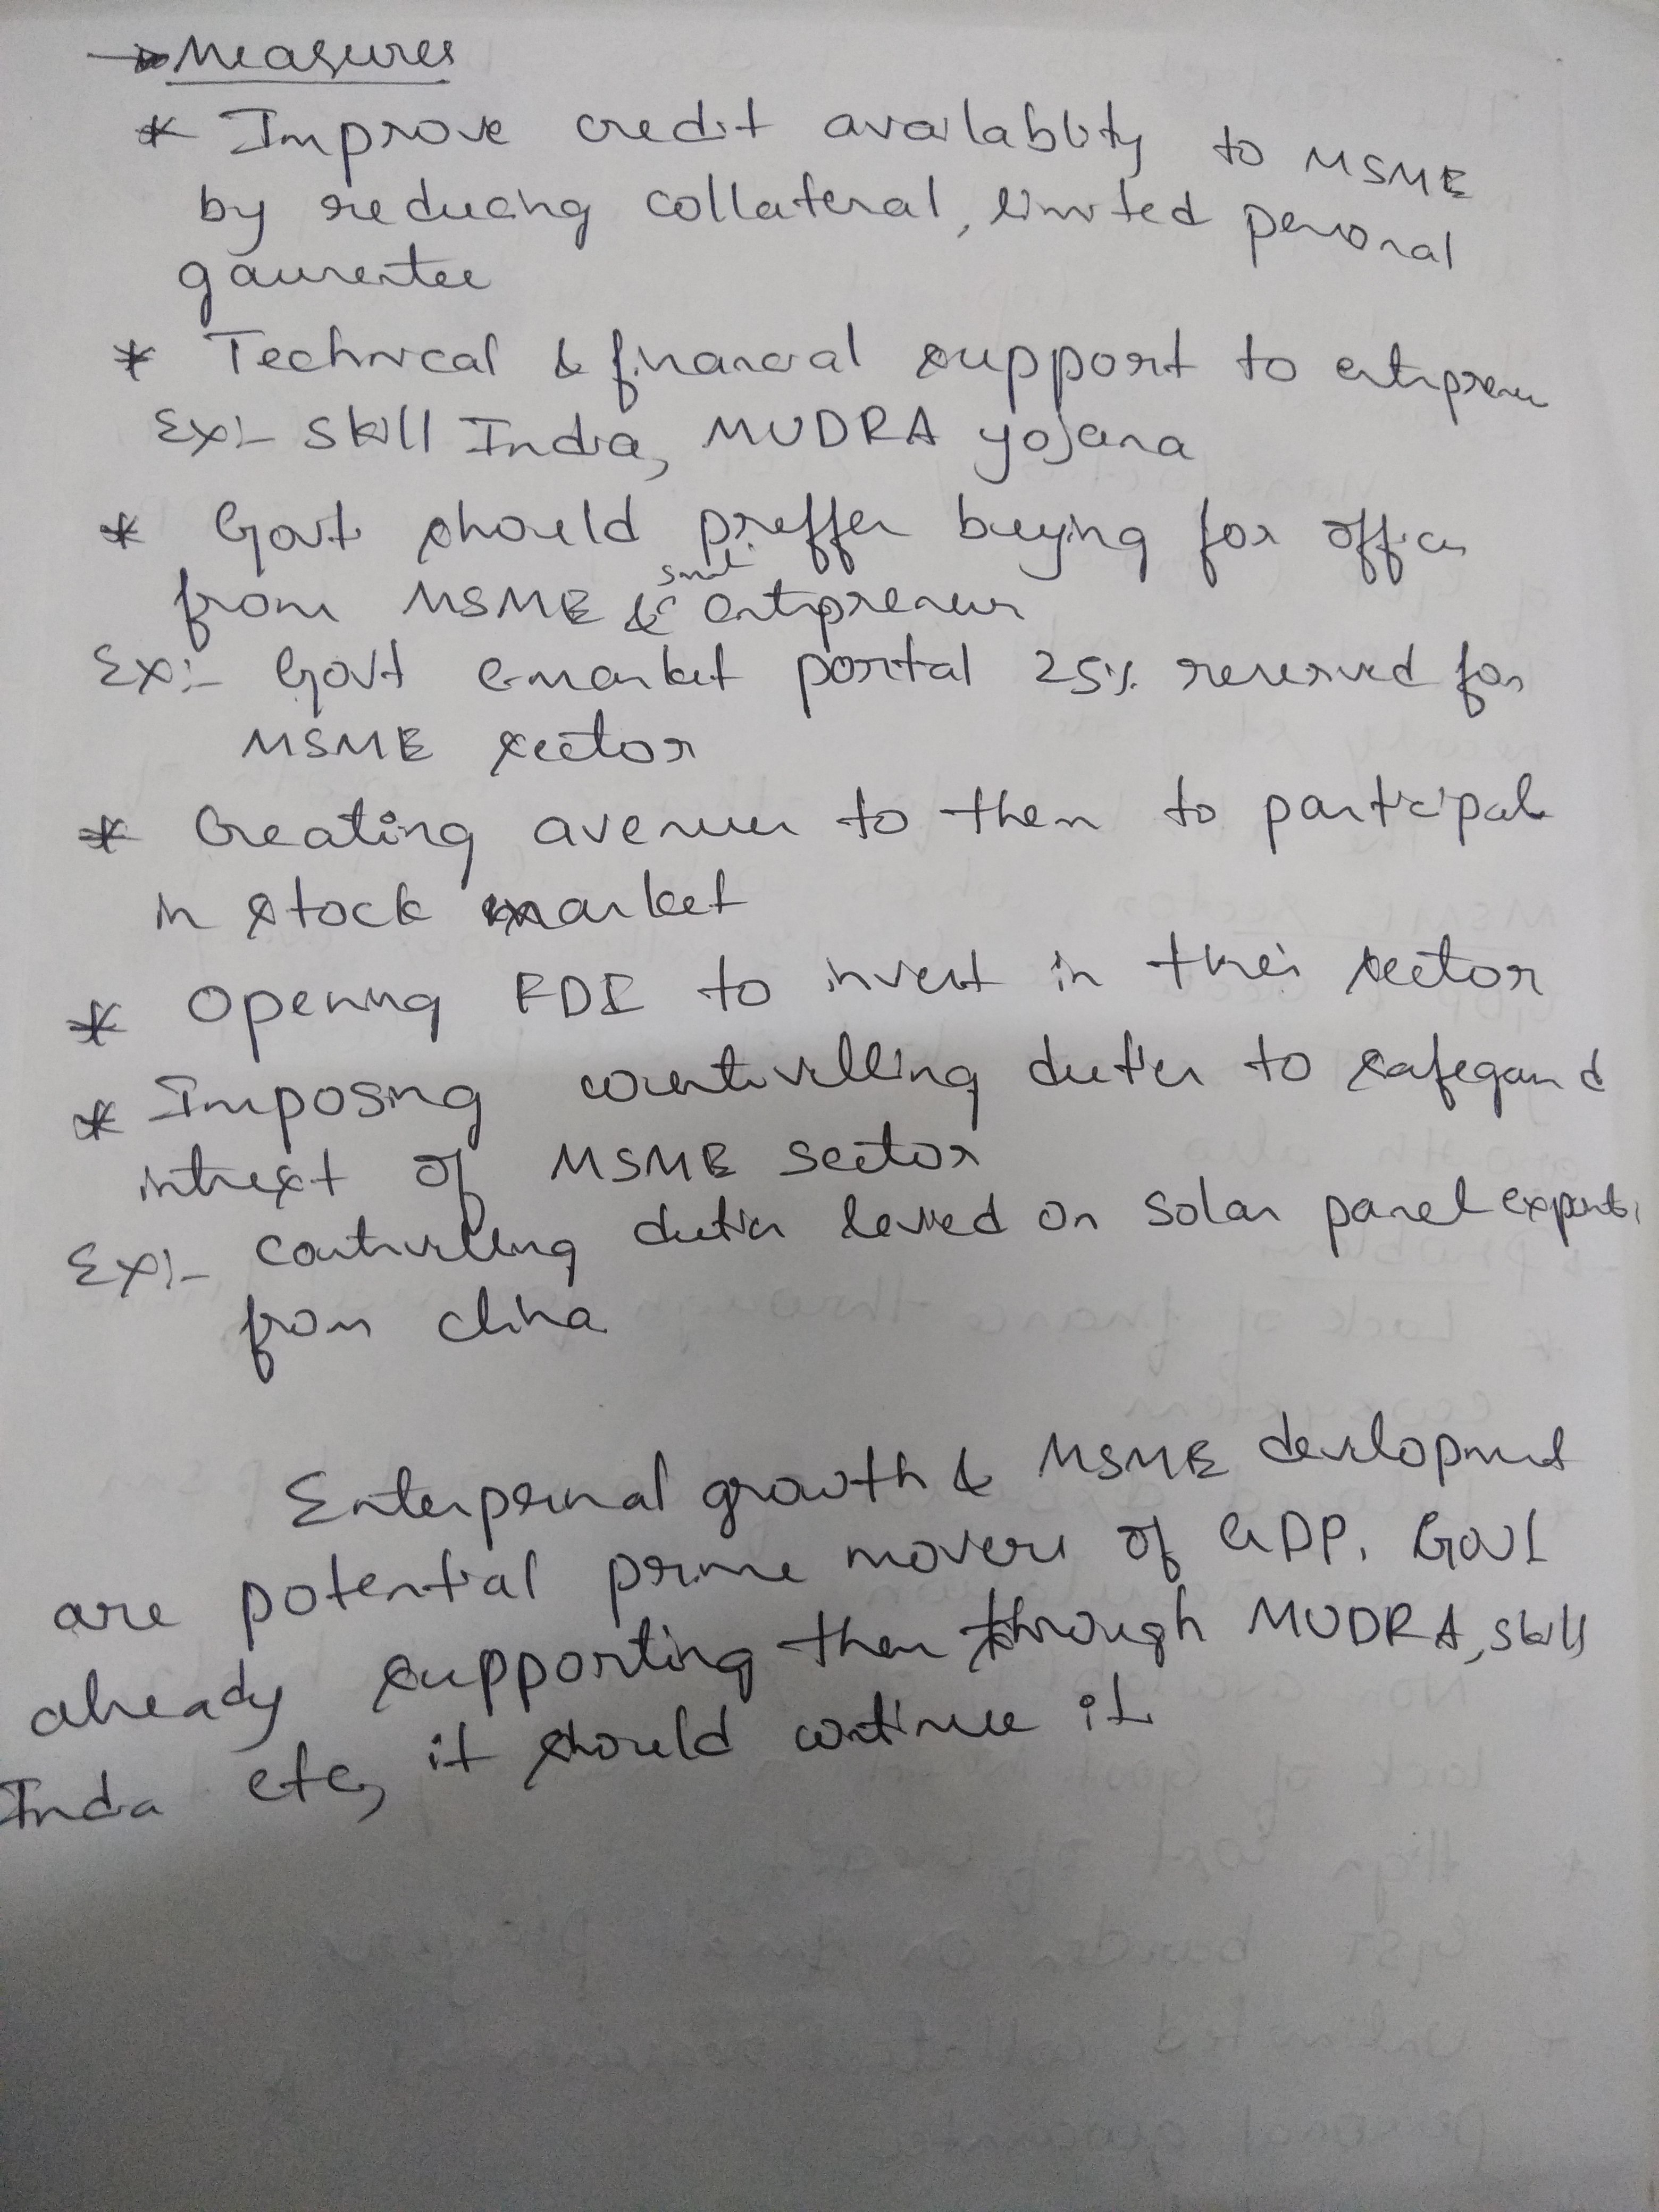 → Measures
* Improve credit availablity to MSME
by reducing collateral, limited personal
gaurentee
* Technical & financial support to entrpreneur
Ex:- Skill India, MUDRA yojana
* Govt should preffer buying for offices
from MSME & small entrpreneur
Ex:- Govt e-market portal 25% reserved for
MSME sector
* Creating avenues to them to participate
in stock market
* Opening FDI to invest in their sector
* Imposing countervelling duties to safegaurd
intrest of MSME sector
Ex:- contrvelling duties levied on solar panel exports
from china
Enterpernal growth & MSME development
are potential prime movers of GDP. Govt
already supporting them through MUDRA, skill
India etc, it should continue it